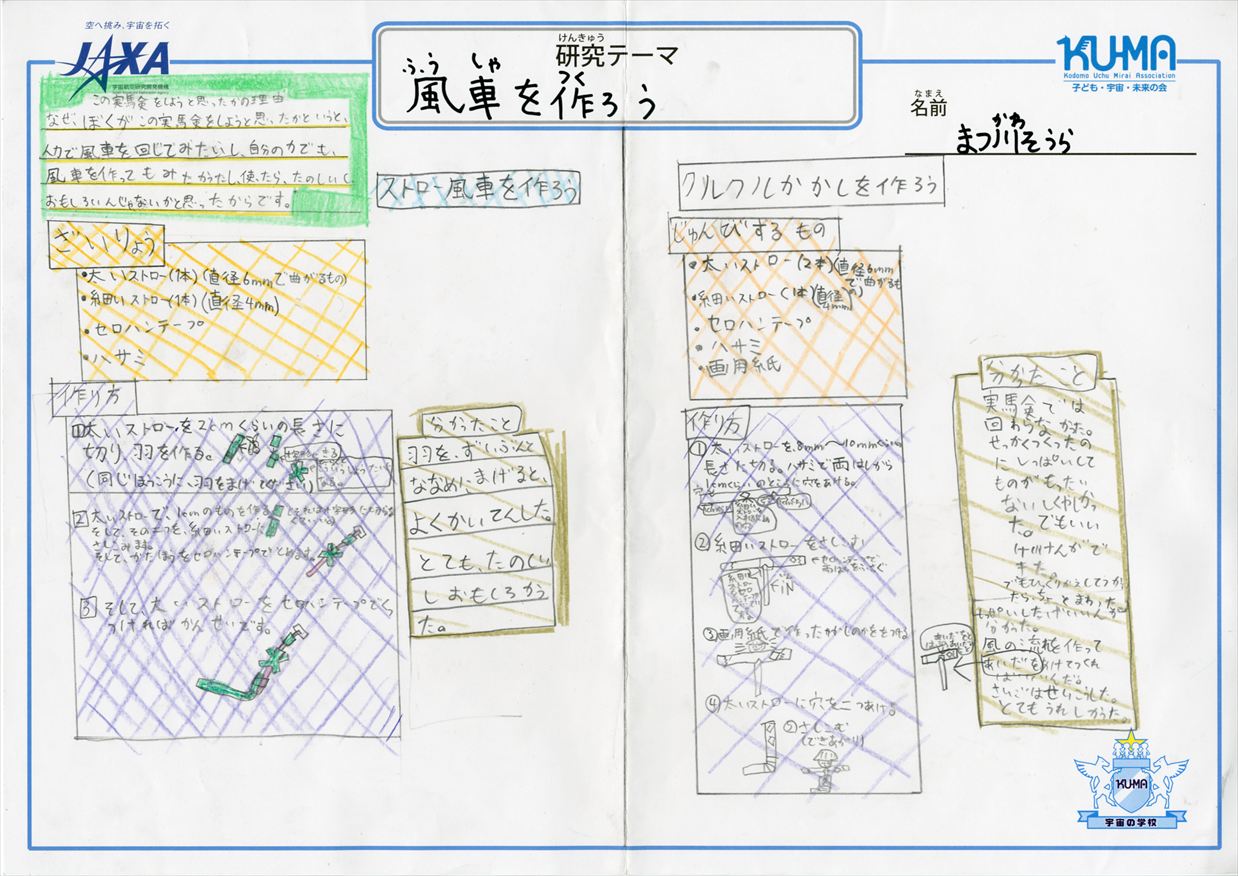 空へ挑み、宇宙を拓く
JAXA
宇宙航空研究開発機構
けんきゅう
研究テーマ
ふうしゃ つく
風車を作ろう
KU-MA
Kodomo Uchu Mirai Association
子ども・宇宙・未来の会
なまえ
名前
かわ
まつ川そうら
この実験をしようと思ったかの理由
なぜ、ぼくがこの実験をしようと思ったかというと、
人力で風車を回してみたいし、自分の力でも、
風車を作ってもみたかったし、使ったら、たのしいし
おもしろいんじゃないかと思ったからです。
ストロー風車を作ろう
ざいりょう
・太いストロー(1本)(直径6mmで曲がるもの)
・細いストロー(1本)(直径4mm)
・セロハンテープ
・ハサミ
作り方
1 太いストローを2cmくらいの長さに
切り、羽を作る。
(同じほうこうに、羽をまげてください)
2 太いストローで、1cmのものを作る
そして、その二つを、細いストローに
さしこみます。
そして、かたほうをセロハンテープでとめます。
3 そして、太いストローをセロハンテープでく
つければかんせいです。
分かったこと
羽を、ずいぶんと
ななめにまげると、
よくかいてんした。
とても、たのしい
しおもしろかっ
た。
クルクルかかしを作ろう
じゅんびするもの
・太いストロー(2本)(直径6mm
で曲がるもの)
・細いストロー(1本)(直径4mm)
・セロハンテープ
・ハサミ
・画用紙
作り方
① 太いストローを、8mm〜10mmくらいの
長さに切る。ハサミで両はしから
1cmくらいのところに穴をあける。
② 細いストローをさしこむ
セロハンテープで
両はしをふさぐ
③ 画用紙で作ったかかしのかおをつける
④ 太いストローに穴を二つあける。
② さしこむ
(できあがり)
分かったこと
実験では
回わらなかった。
せっかくつくったの
にしっぱいして
ものがもったい
ないしくやしかっ
た。でもいい
けいけんがで
きた。
でもひっくりかえしてつかっ
たら、ちょっとまわった。
しっぱいしたげんいんが
分かった。
風の流れを作って
あいだをあけてつくれ
ばいいんだ。
さいごはせいこうした。
とてもうれしかった。
KU-MA
宇宙の学校